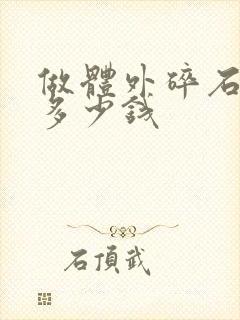 做體外碎石
多少錢
石頂武